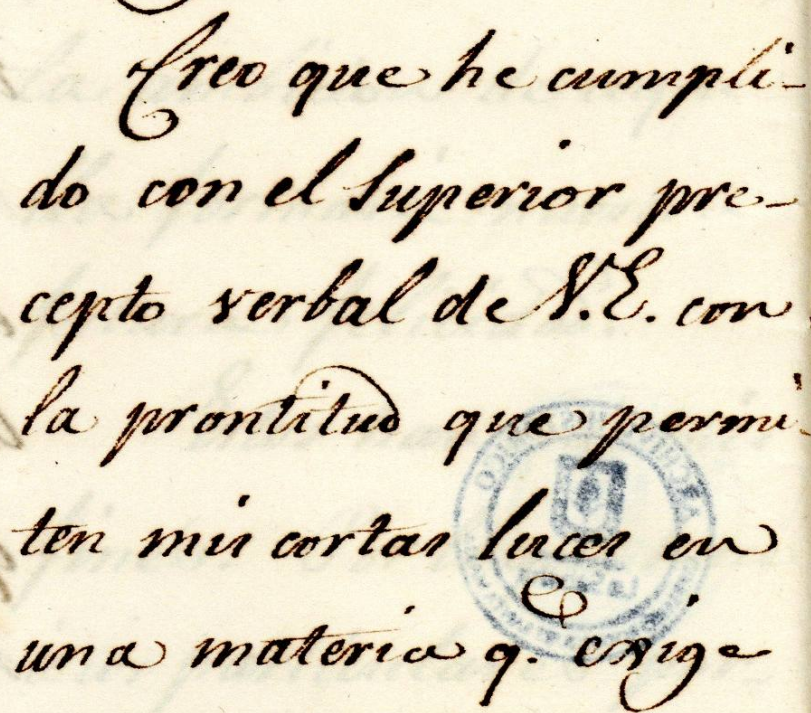 Creo que he cumpli-
do con el Superior pre-
cepto verbal de V.E. con
la prontitud que permi-
ten mis cortas luces en
una materia q. exige